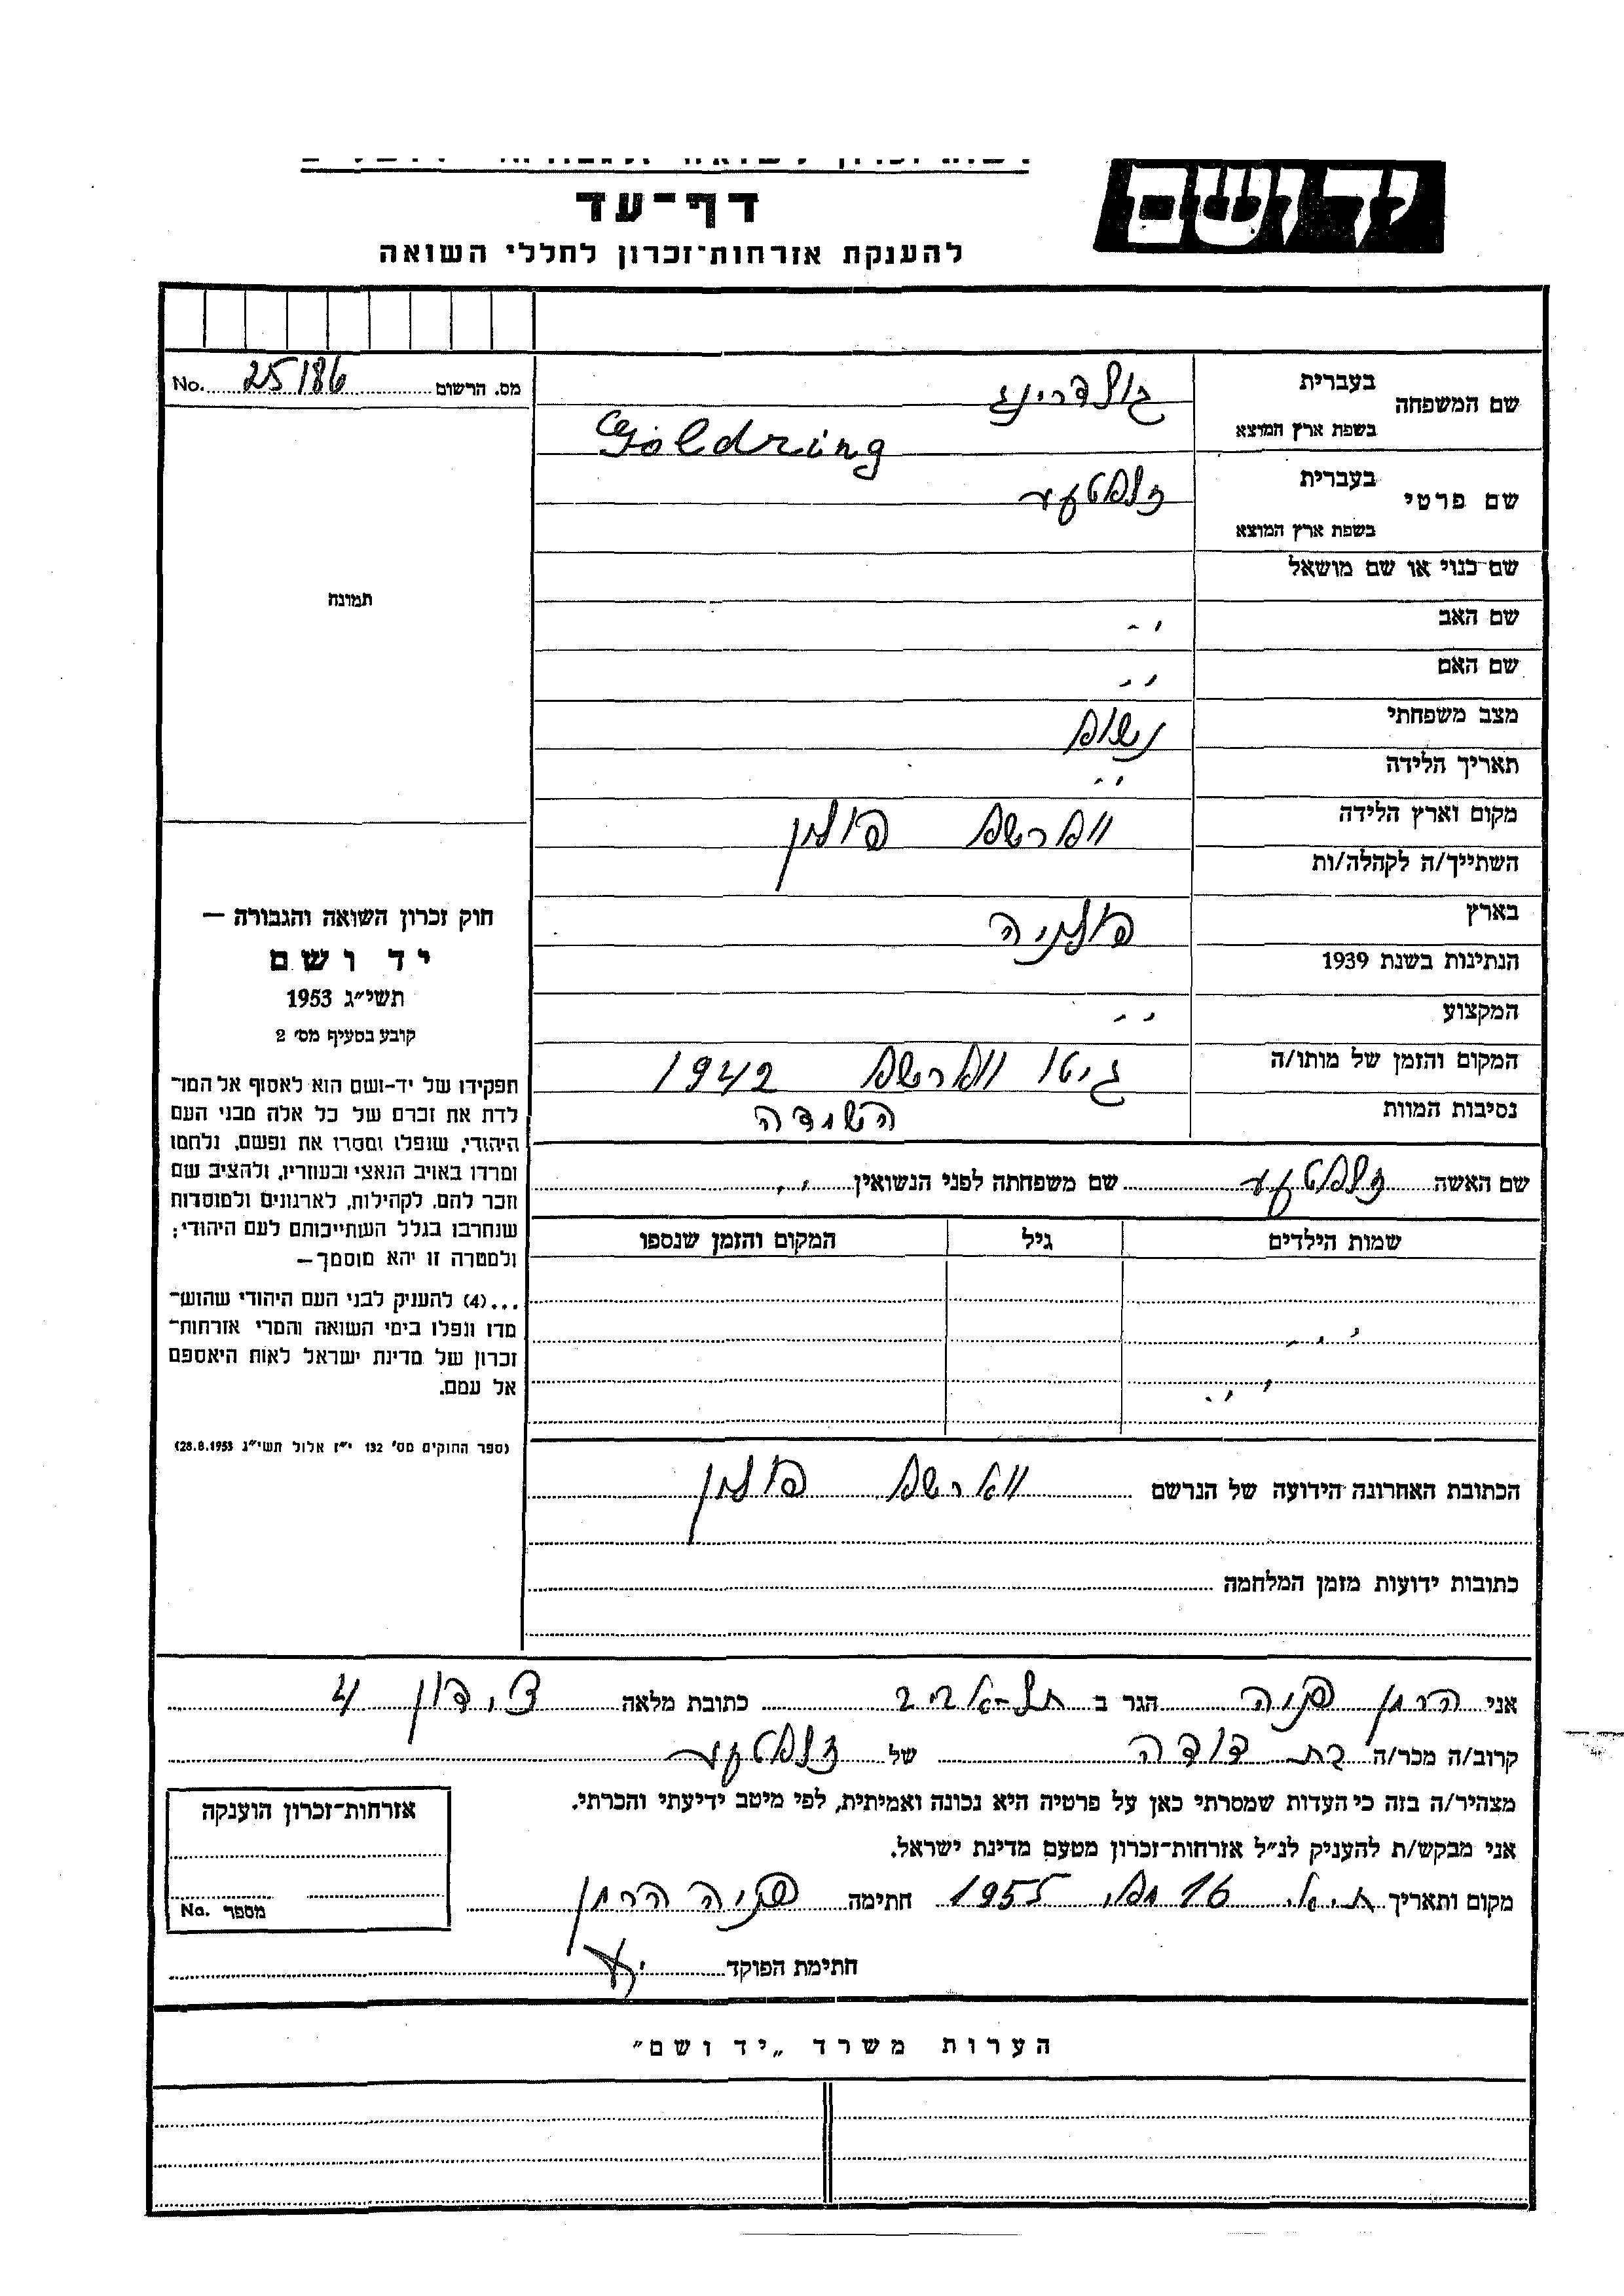 יד ושם
דף-עד
להענקת אזרחות-זכרון לחללי השואה
מס. הרשום 25186 No.
שם המשפחה
בעברית גולדרינג
בשפת ארץ המוצא Goldring
שם פרטי
בעברית זלאטקע
בשפת ארץ המוצא
תמונה
שם כנוי או שם מושאל
שם האב -,
שם האם -,
מצב משפחתי נשואה
תאריך הלידה -,
מקום וארץ הלידה ווארשא פולין
השתייך/ה לקהלה/ות
בארץ פולניה
הנתינות בשנת 1939
המקצוע -,
המקום והזמן של מותו/ה גיטו ווארשא 1942
נסיבות המוות השמדה
שם האשה זלאטקע שם משפחתה לפני הנשואין -,
שמות הילדים גיל המקום והזמן שנספו
חוק זכרון השואה והגבורה —
יד ושם
תשי״ג 1953
קובע בסעיף מס׳ 2
תפקידו של יד-ושם הוא לאסוף אל המו־
לדת את זכרם של כל אלה מבני העם
היהודי, שנפלו ומסרו את נפשם, נלחמו
ומרדו באויב הנאצי ובעוזריו, ולהציב שם
וזכר להם, לקהילות, לארגונים ולמוסדות
שנחרבו בגלל השתייכותם לעם היהודי;
ולמטרה זו יהא מוסמך —
...(4) להעניק לבני העם היהודי שהוש־
מדו ונפלו בימי השואה והמרי אזרחות־
זכרון של מדינת ישראל לאות היאספם
אל עמם.
(ספר החוקים מס׳ 132 י״ז אלול תשי״ג 28.8.1953)
הכתובת האחרונה הידועה של הנרשם ווארשא פולין
כתובות ידועות מזמן המלחמה
אני פניה הגר ב תל-אביב כתובת מלאה צידון 4
קרוב/ה מכר/ה בת דודה של זלאטקע
מצהיר/ה בזה כי העדות שמסרתי כאן על פרטיה היא נכונה ואמיתית, לפי מיטב ידיעתי והכרתי.
אני מבקש/ת להעניק לנ״ל אזרחות-זכרון מטעם מדינת ישראל.
מקום ותאריך ת.א. 16 מאי 1955 חתימה פניה
חתימת הפוקד
אזרחות-זכרון הוענקה
מספר No.
הערות משרד „יד ושם״